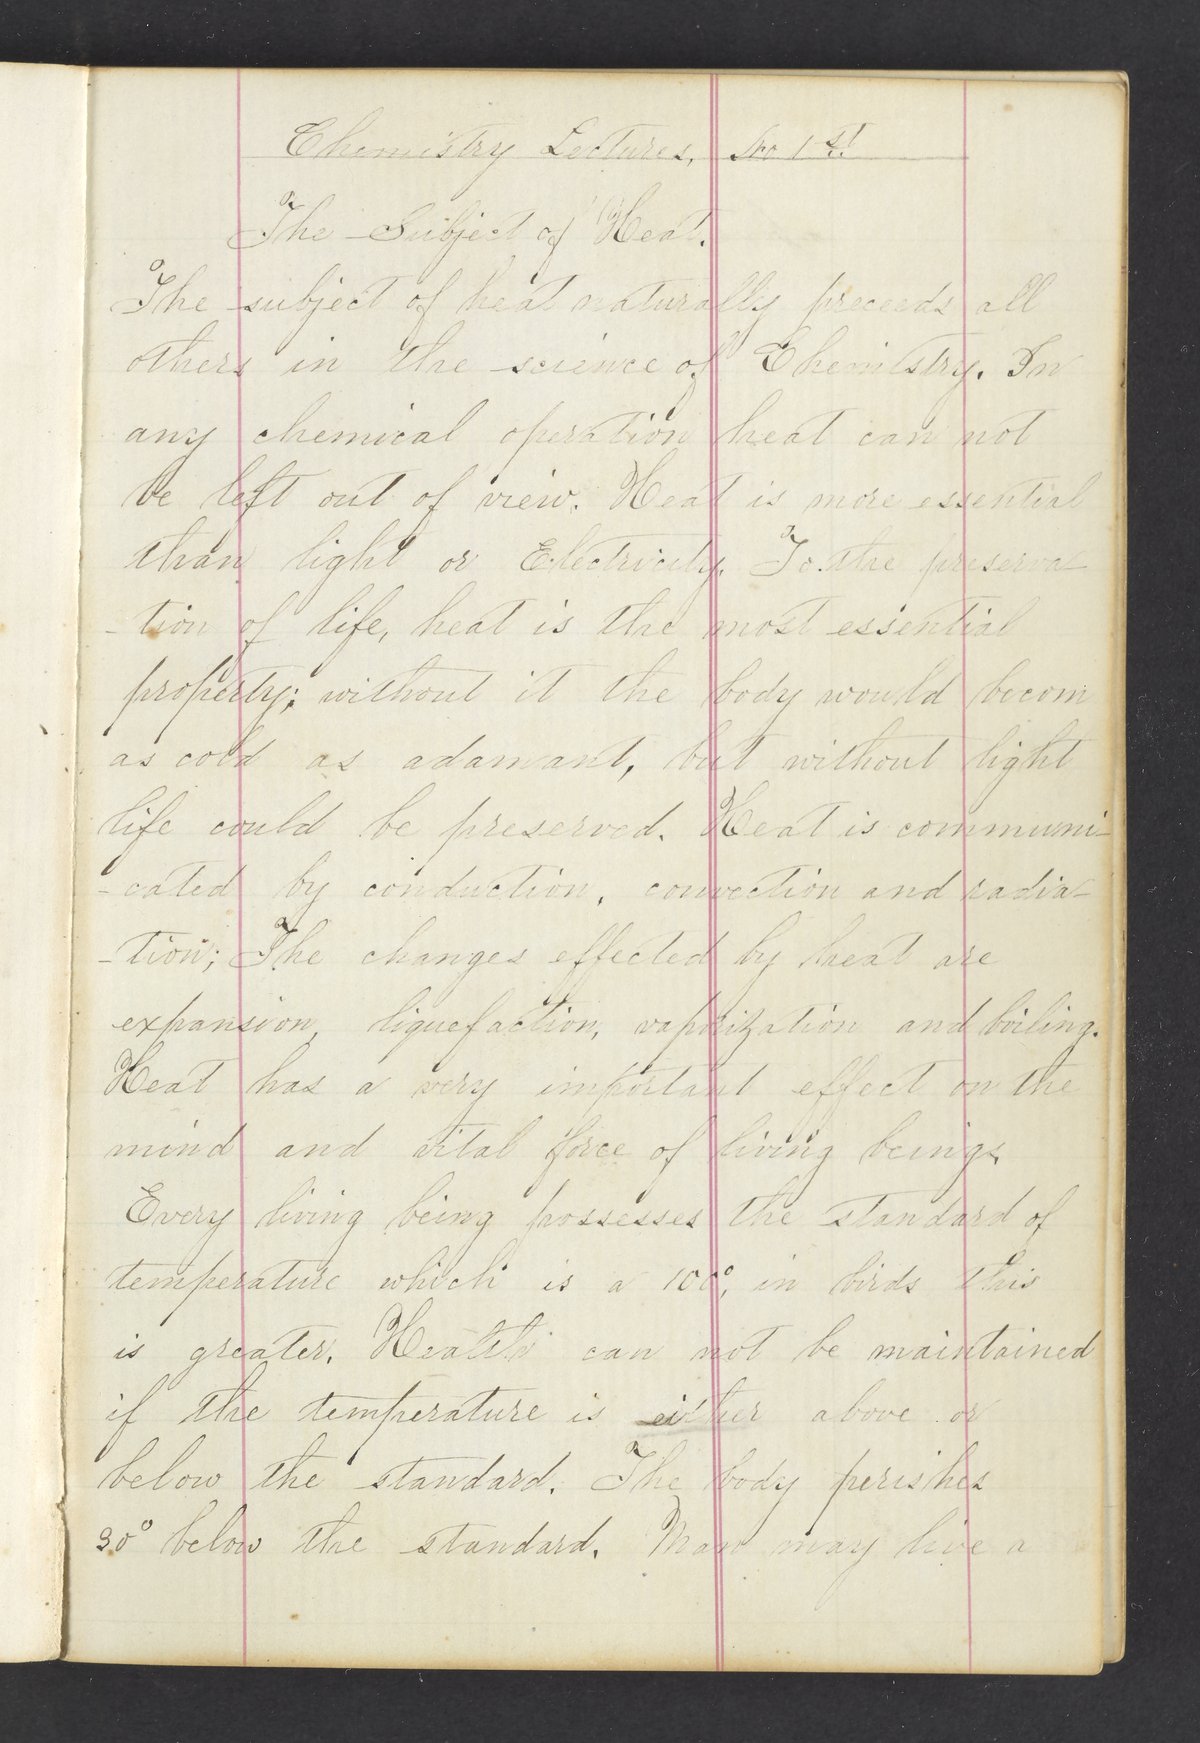 Chemistry Lectures, No 1st
The Subject of Heat.
The subject of heat naturally preceeds all
others in the science of Chemistry. In
any chemical operation heat can not
be left out of view. Heat is more essential
than light or Electricity. To the preserva-
-tion of life, heat is the most essential
property; without it the body would becom
as cold as adamant, but without light
life could be preserved. Heat is communi-
-cated by conduction, convection and radia-
-tion; The changes effected by heat are
expansion, liquefaction, vaporization and boiling.
Heat has a very important effect on the
mind and vital force of living beings.
Every living being possesses the standard of
temperature which is a 100°, in birds this
is greater. Health can not be maintained
if the temperature is either above or
below the standard. The body perishes
30° below the standard. Man may live a